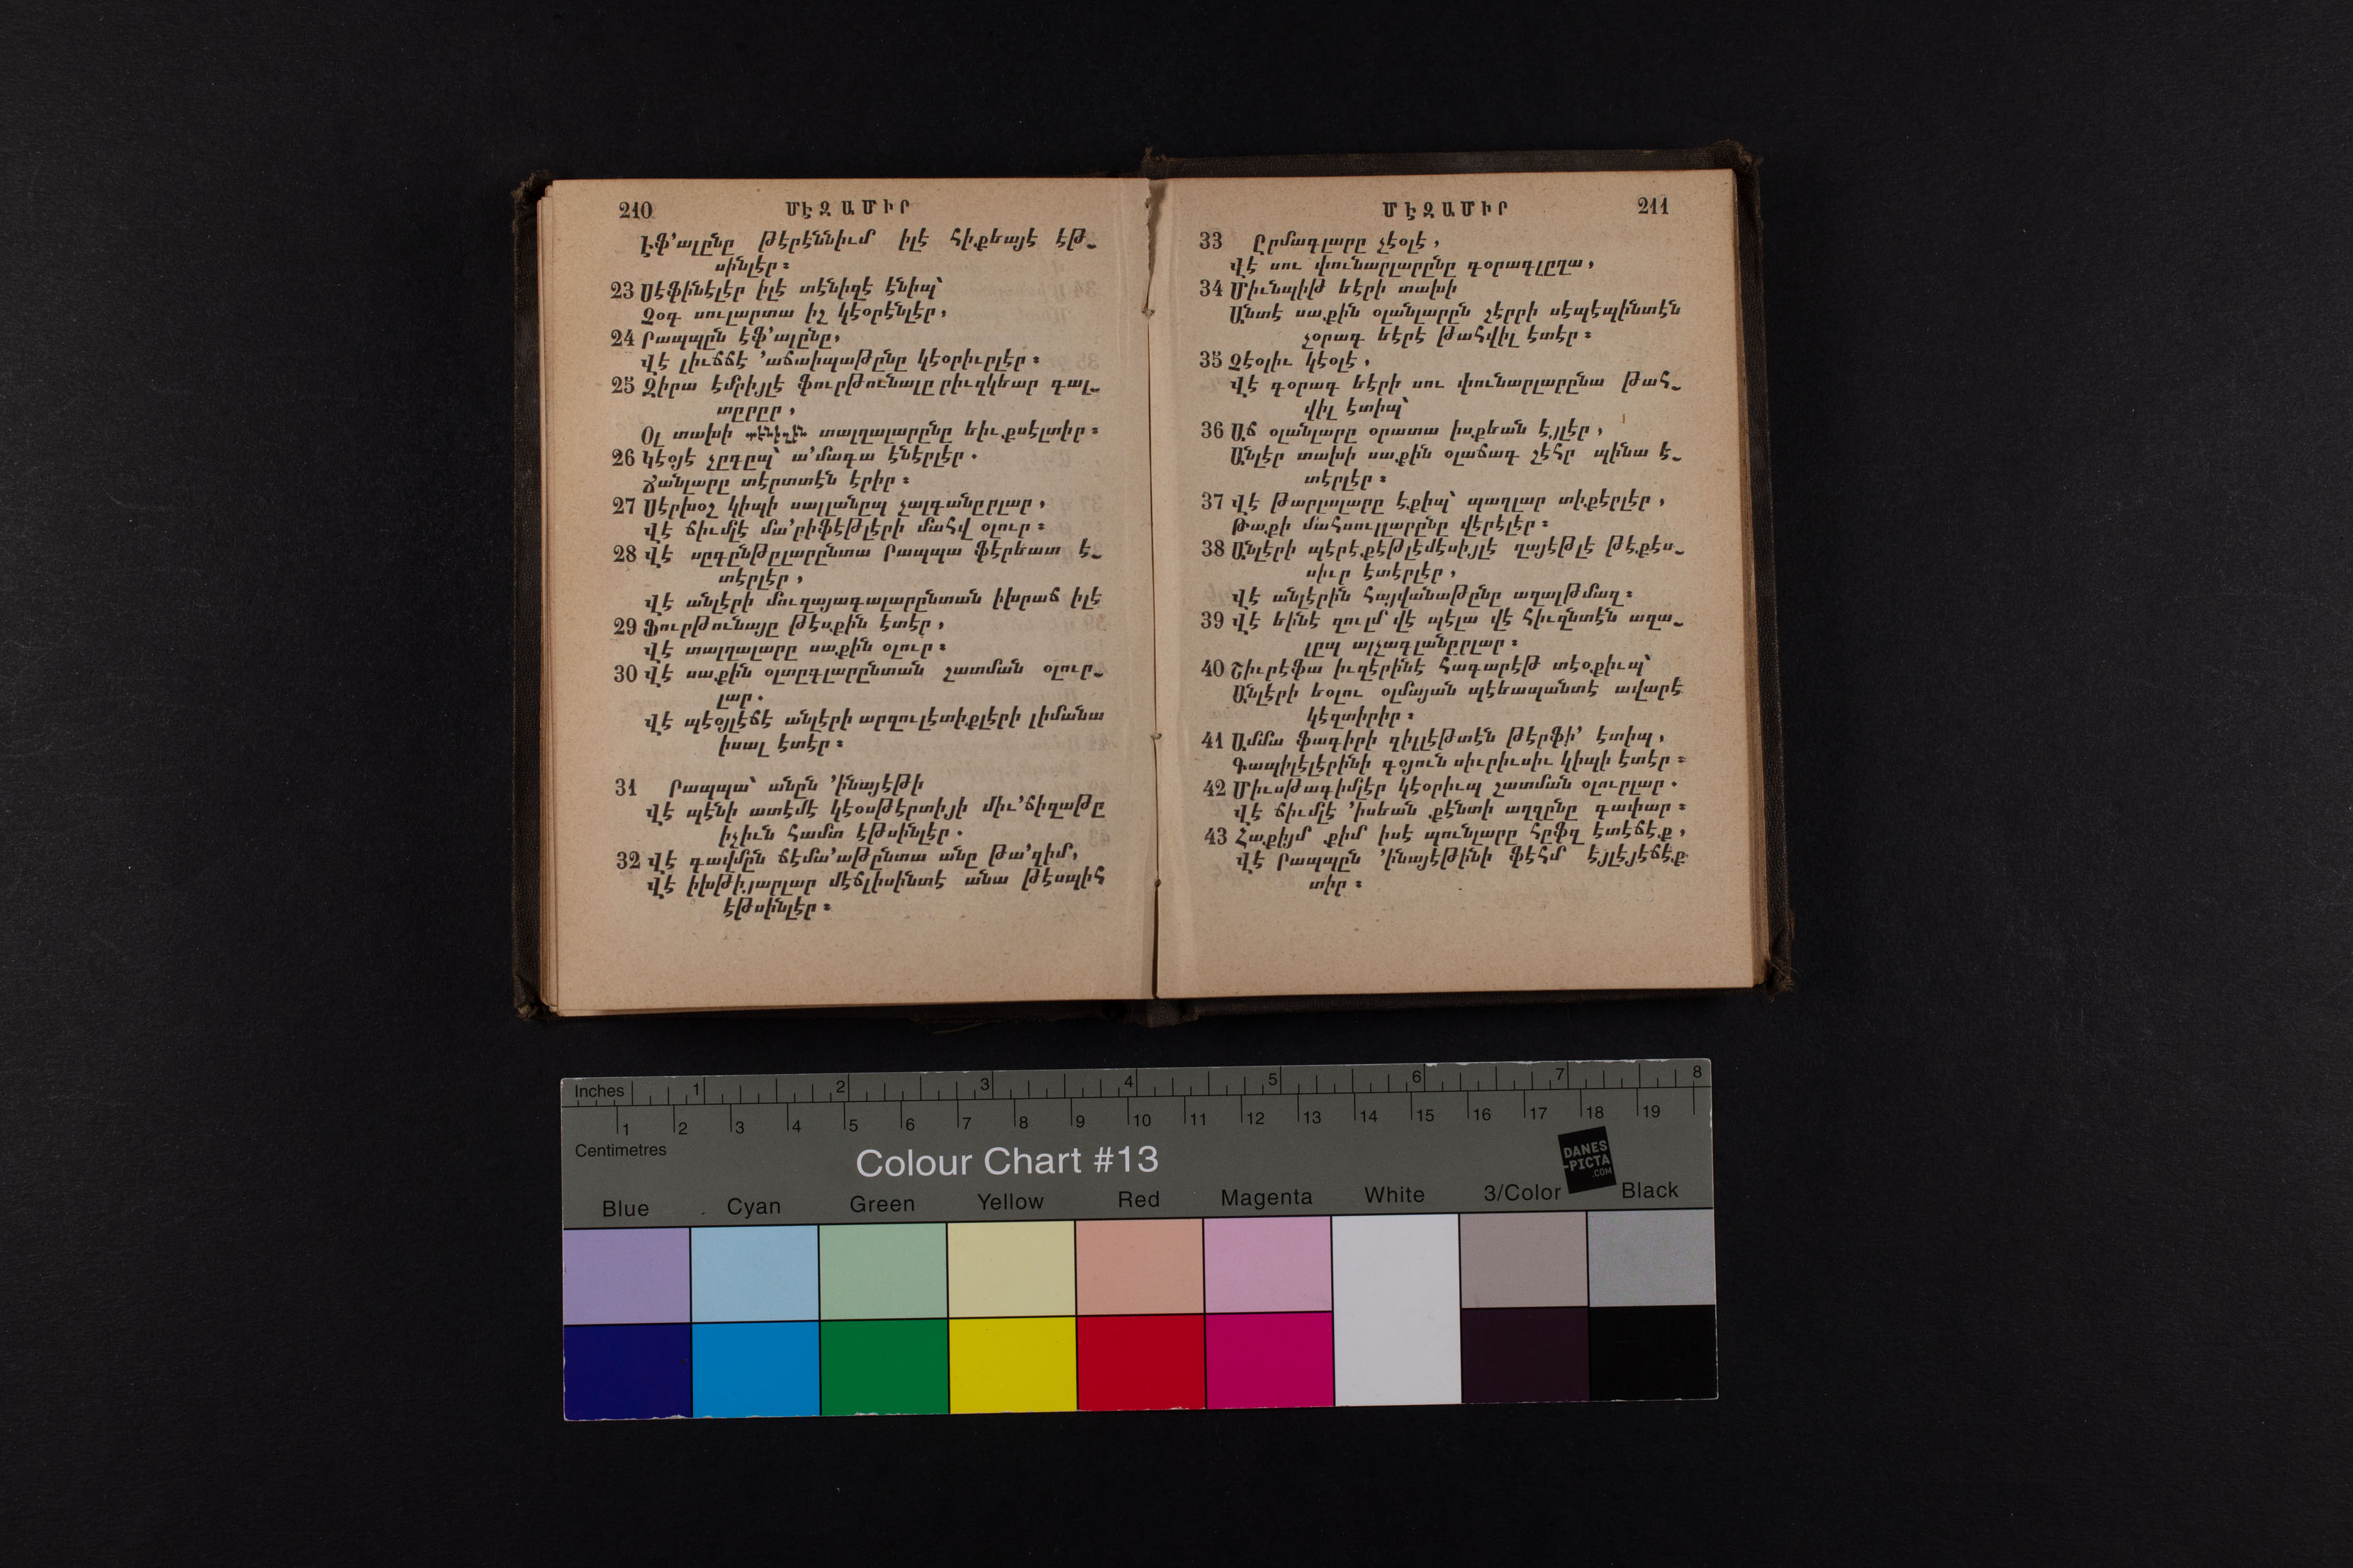 210 ՄԷԶԱՄԻՐ
Էֆ՚ալընը թէրէննիւմ իլէ հիքեայէ էթ֊
սինլէր։
23 Սէֆինէլէր իլէ տէնիզէ էնիպ՝
Չօգ սուլարտա իշ կէօրէնլէր,
24 Րապպըն էֆ՚ալընը,
Վէ լիւճճէ ՚աճաիպաթընը կէօրիւրլէր։
25 Զիրա էմրիյլէ ֆուրթունալը րիւզկեար գալ֊
տըրըր,
Օլ տախի տէնիզին տալղալարընը եիւքսէլտիր։
26 Կէօյէ չըգըպ՝ ա՚մագա էնէրլէր.
Ճանլարը տէրտտէն էրիր։
27 Սէրխօշ կիպի սալլանըպ չալգանըրլար,
Վէ ճիւմլէ մա՚րիֆէթլէրի մահվ օլուր։
28 Վէ սըգընթըլարընտա Րապպա ֆէրեատ է֊
տէրլէր,
Վէ անլէրի մուզայագալարընտան իխրաճ իլէ
29 Ֆուրթունայը թէսքին էտէր,
Վէ տալղալարը սաքին օլուր։
30 Վէ սաքին օլտըգլարընտան շատման օլուր֊
լար.
Վէ պէօյլէճէ անլէրի արզուլէտիքլէրի լիմանա
իսալ էտէր։
31 Րապպա՝ անըն ՚ինայէթի
Վէ պէնի ատէմէ կէօսթէրտիյի միւ՚ճիզաթը
իչիւն համտ էթսինլէր.
32 Վէ գավմըն ճէմա՚աթընտա անը թա՚զիմ,
Վէ իխթիյարլար մէճլիսինտէ անա թէսպիհ
էթսինլէր։
ՄԷԶԱՄԻՐ 211
33 Ըրմագլարը չէօլէ,
Վէ սու փունարլարընը գօրագլըղա,
34 Միւնպիթ եէրի տախի
Անտէ սաքին օլանլարըն շէրրի սէպէպինտէն
չօրագ եէրէ թահվիլ էտէր։
35 Չէօլիւ կէօլէ,
Վէ գօրագ եէրի սու փունարլարընա թահ֊
վիլ էտիպ՝
36 Աճ օլանլարը օրատա իսքեան էյլէր,
Անլէր տախի սաքին օլաճագ շէհր պինա է֊
տէրլէր։
37 Վէ թարլալարը էքիպ՝ պաղլար տիքէրլէր,
Թաքի մահսուլլարընը վէրէլէր։
38 Անլէրի պէրէքէթլէմէսիյլէ ղայէթլէ թէքէս֊
սիւր էտէրլէր,
Վէ անլէրին հայվանաթընը ազալթմազ։
39 Վէ եինէ զուլմ վէ պէլա վէ հիւզնտէն ազա֊
լըպ ալչագլանըրլար։
40 Շիւրէֆա իւզէրինէ հագարէթ տէօքիւպ՝
Անլէրի եօլու օլմայան պէեապանտէ ավարէ
կէզտիրիր։
41 Ամմա ֆագիրի զիլլէթտէն թէրֆի՚ էտիպ,
Գապիլէլէրինի գօյուն սիւրիւսիւ կիպի էտէր։
42 Միւսթագիմլէր կէօրիւպ շատման օլուրլար.
Վէ ճիւմլէ ՚իսեան քէնտի աղզընը գափար։
43 Հաքիյմ քիմ իսէ պունլարը հըֆզ էտէճէք,
Վէ Րապպըն ՚ինայէթինի ֆէհմ էյլէյէճէք֊
տիր։
Inches 1 2 3 4 5 6 7 8
1 2 3 4 5 6 7 8 9 10 11 12 13 14 15 16 17 18 19
Centimetres
Colour Chart #13
DANES
-PICTA
.COM
Blue Cyan Green Yellow Red Magenta White 3/Color Black